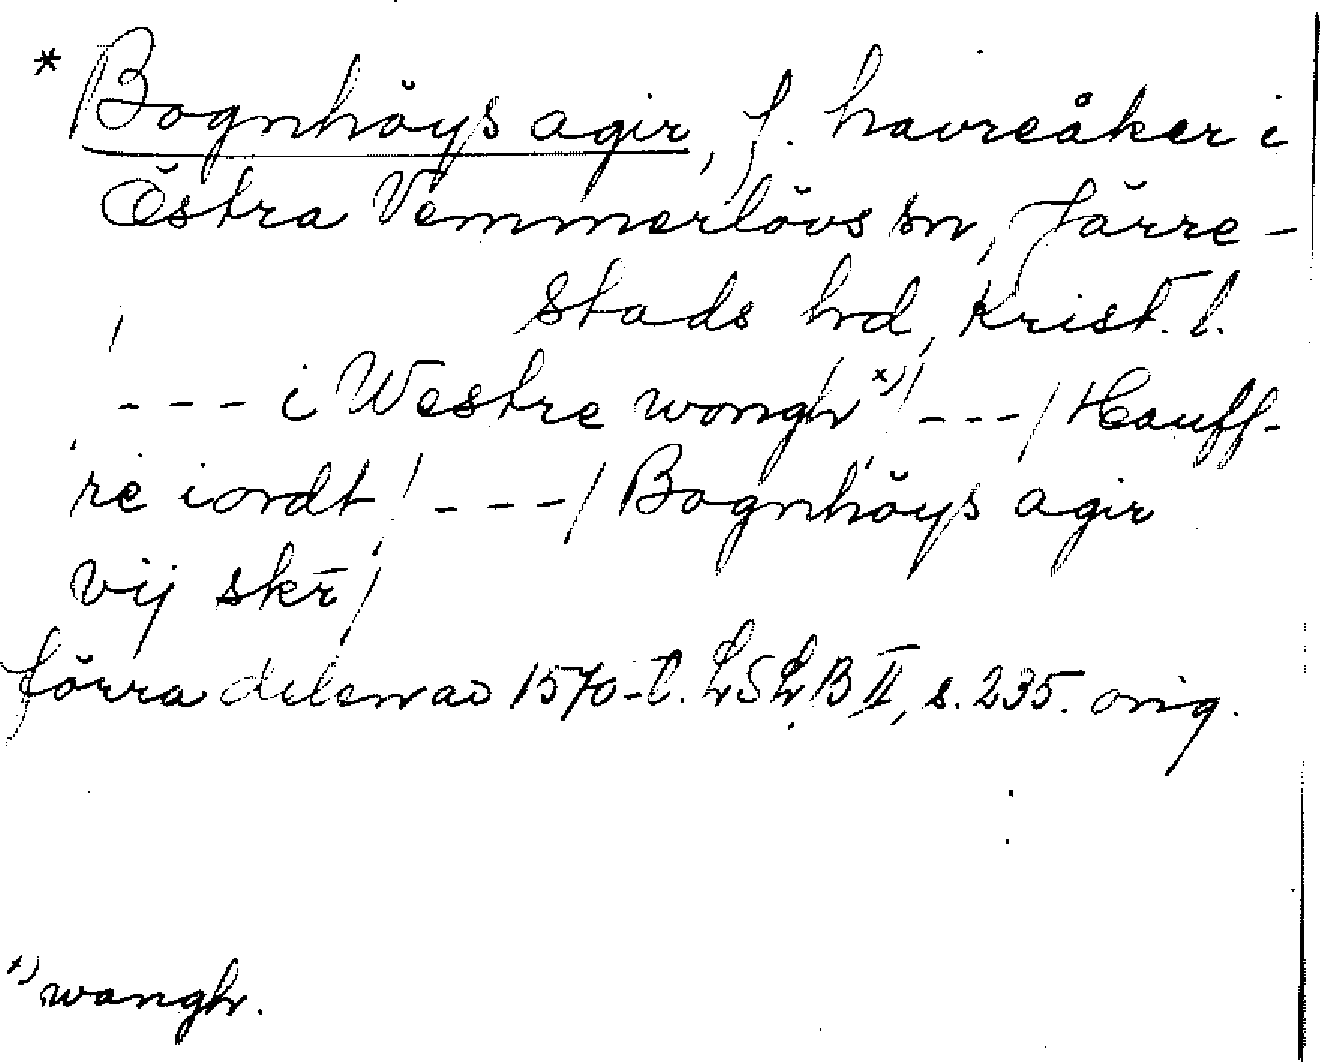 * Bognhöys agir, f. havreåker i
Östra Vemmerlövs sn, Järre-
stads hd, Krist. l.
--- i Westre wongh *) / --- / Hauff-
re iordt / --- / Bognhöys agir
vij skr̄ /
förra delen av 1570-t. LSLB II, s. 235. orig.
*) wangh.